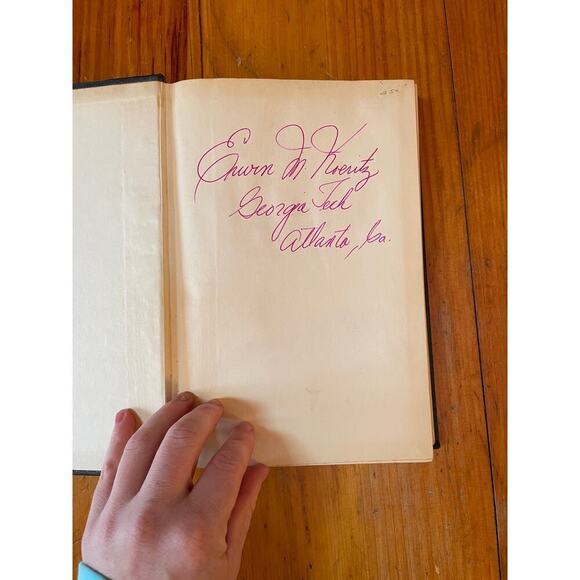 Erwin M. Koeritz
Georgia Tech
Atlanta, Ga.